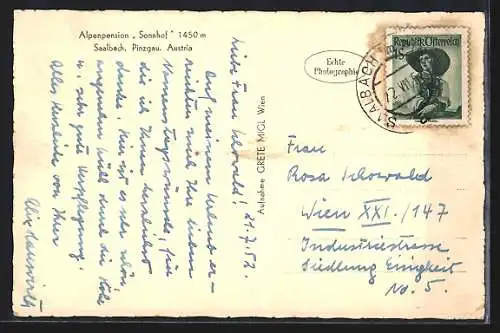 Alpenpension „Sonnhof" 1450 m
Saalbach, Pinzgau, Austria
Echte
Photographie
Republik Österreich
SAALBACH
22. VII.
Aufnahme GRETE MIGL Wien
21.7.52.
Liebe Frau
Auf meinem Urlaub er-
reichten mich Ihre lieben
Namenstagswünsche, für
die ich Ihnen herzlichst
danke. Hier ist es sehr schön
angenehm kühl und die Höhe
u. sehr gute Verpflegung.
Alles herzliche von Ihrer
Frau
Rosa
Wien XXI./147
Industriestrasse
Siedlung Einigkeit
No. 5.